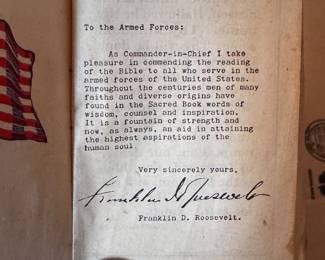 To the Armed Forces:
As Commander-in-Chief I take
pleasure in commending the reading
of the Bible to all who serve in the
armed forces of the United States.
Throughout the centuries men of many
faiths and diverse origins have
found in the Sacred Book words of
wisdom, counsel and inspiration.
It is a fountain of strength and
now, as always, an aid in attaining
the highest aspirations of the
human soul.
Very sincerely yours,
Franklin D Roosevelt
Franklin D. Roosevelt.